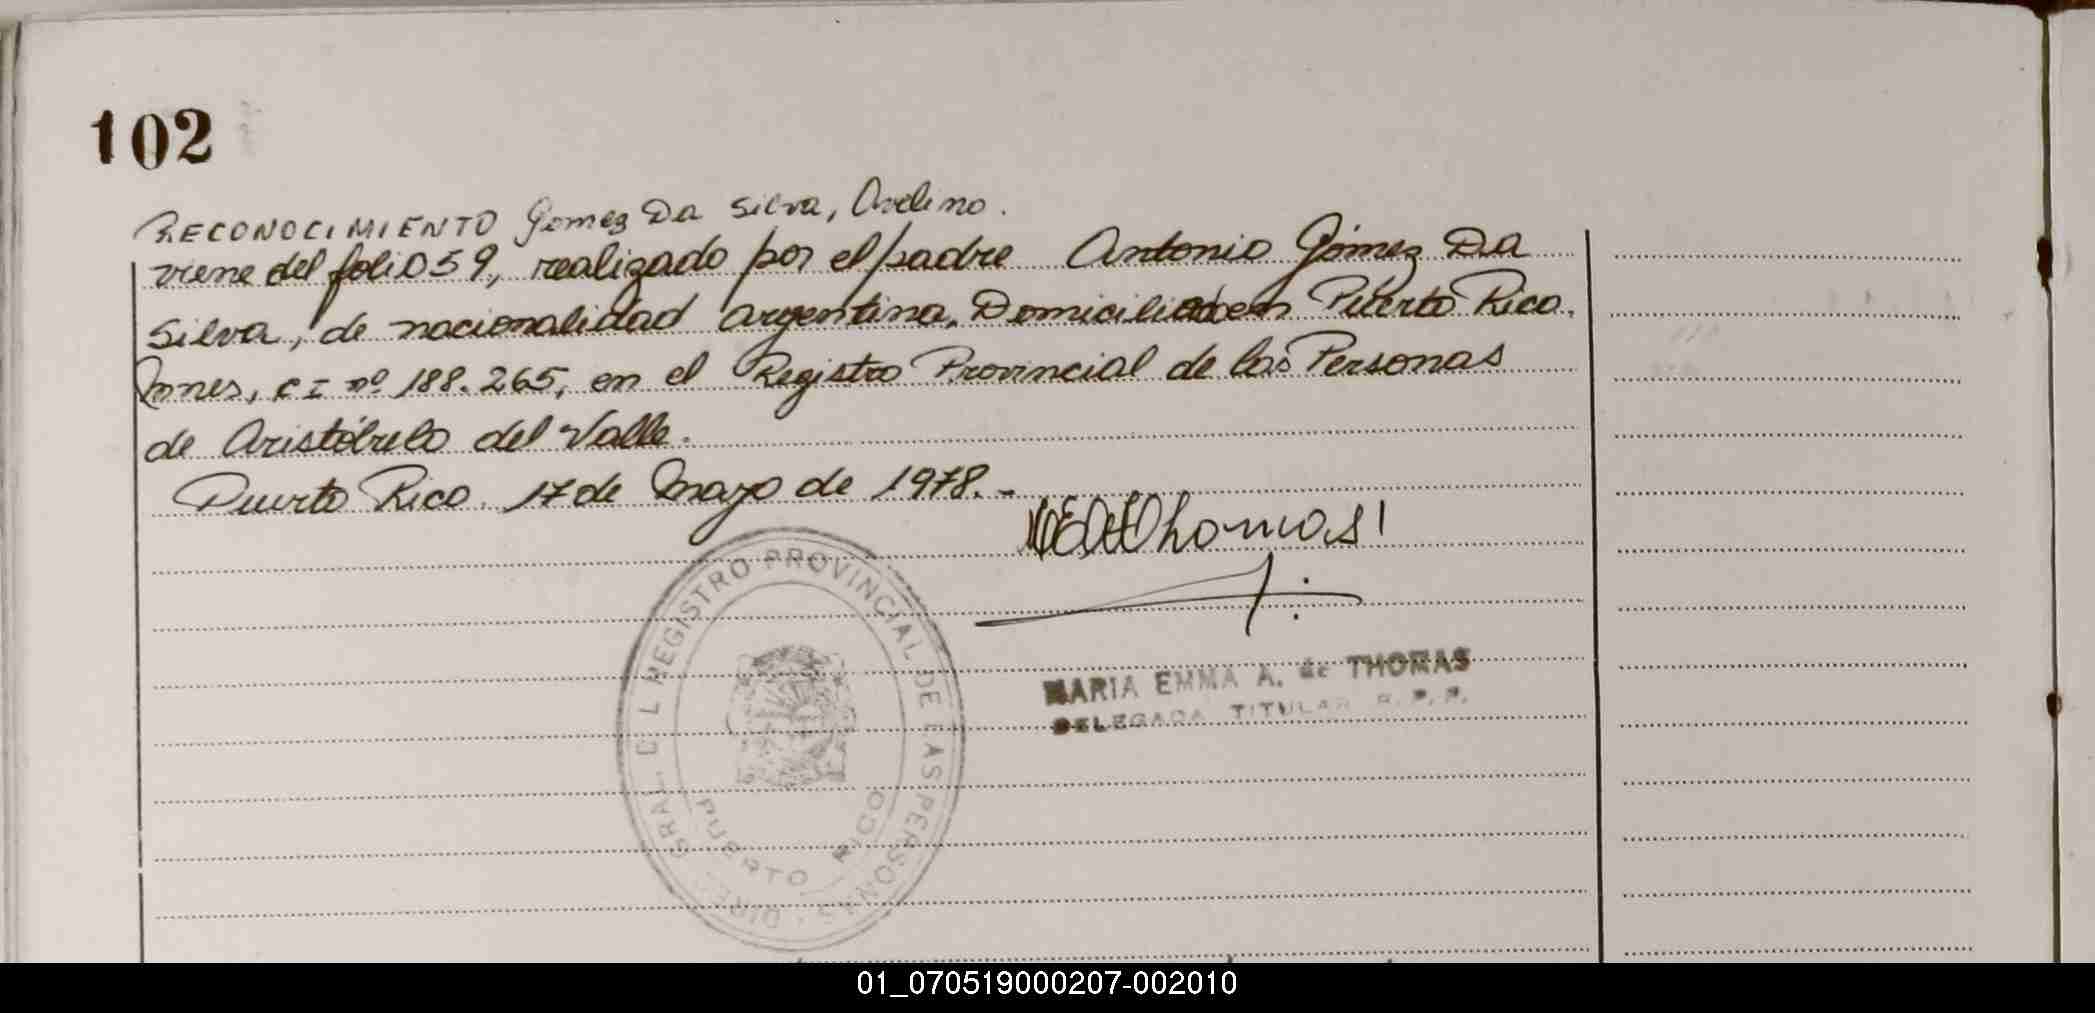 102
RECONOCIMIENTO Gomez Da Silva, Avelino.
viene del folio 59, realizado por el padre Antonio Gómez Da
Silva, de nacionalidad argentina, Domiciliado en Puerto Rico.
Mnes, C I nº 188.265, en el Registro Provincial de las Personas
de Aristóbulo del Valle.
Puerto Rico. 17 de Mayo de 1978.-
DIREC. GRAL. DEL REGISTRO PROVINCIAL DE LAS PERSONAS
PUERTO RICO
MARIA EMMA A. de THOMAS
DELEGADA TITULAR R. P. P.
01_070519000207-002010